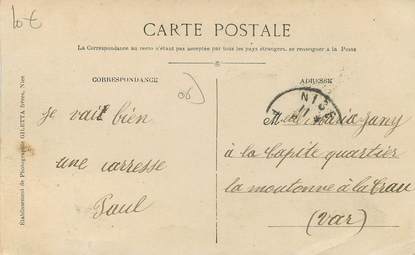 10€
CARTE POSTALE
La Correspondance au recto n'étant pas acceptée par tous les pays étrangers, se renseigner à la Poste
CORRESPONDANCE
je vais bien
une carresse
Paul
06
ADRESSE
NICE
Maria Jany
à la Capite quartier
la moutonne à la Crau
(Var)
Etablissement de Photographie GILETTA frères, Nice